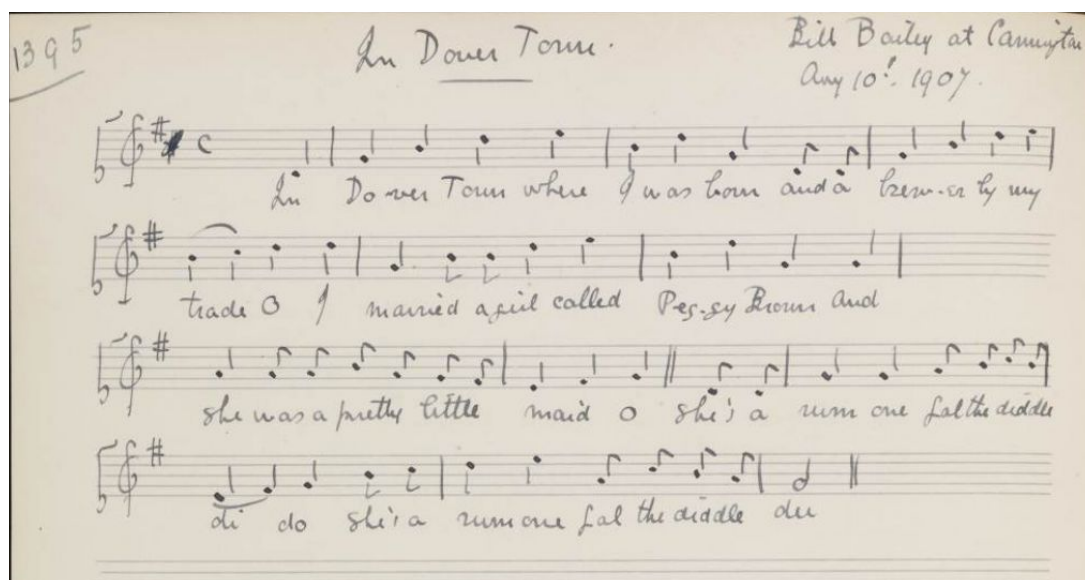 1395
In Dover Town.
Bill Bailey at Cannington
Aug 10! 1907.
C
In Do-ver Town where I was born and a brew-er by my
trade O I married a girl called Peg-gy Brown and
she was a pretty little maid O she's a rum one fal the diddle
di do she's a rum one fal the diddle dee